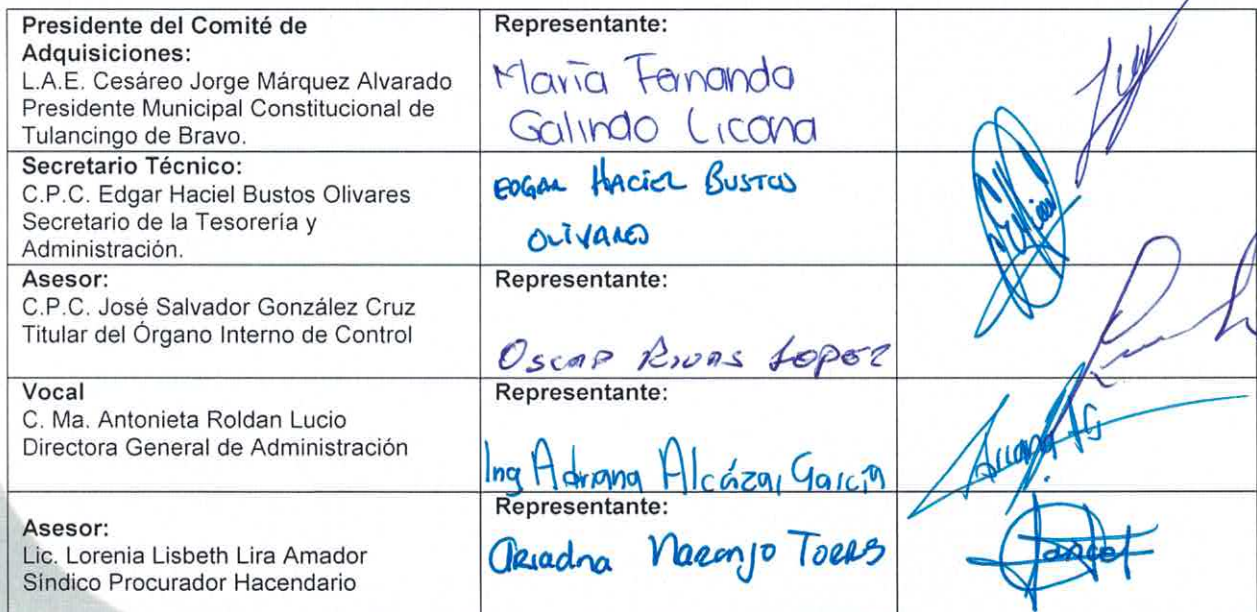 Presidente del Comité de
Adquisiciones:
L.A.E. Cesáreo Jorge Márquez Alvarado
Presidente Municipal Constitucional de
Tulancingo de Bravo.
Representante:
María Fernanda
Galindo Licona
Secretario Técnico:
C.P.C. Edgar Haciel Bustos Olivares
Secretario de la Tesorería y
Administración.
EDGAR HACIEL BUSTOS
OLIVARES
Asesor:
C.P.C. José Salvador González Cruz
Titular del Órgano Interno de Control
Representante:
Oscar Rivas Lopez
Vocal
C. Ma. Antonieta Roldan Lucio
Directora General de Administración
Representante:
Ing Adriana Alcázar García
Asesor:
Lic. Lorenia Lisbeth Lira Amador
Síndico Procurador Hacendario
Representante:
Ariadna Naranjo Torres